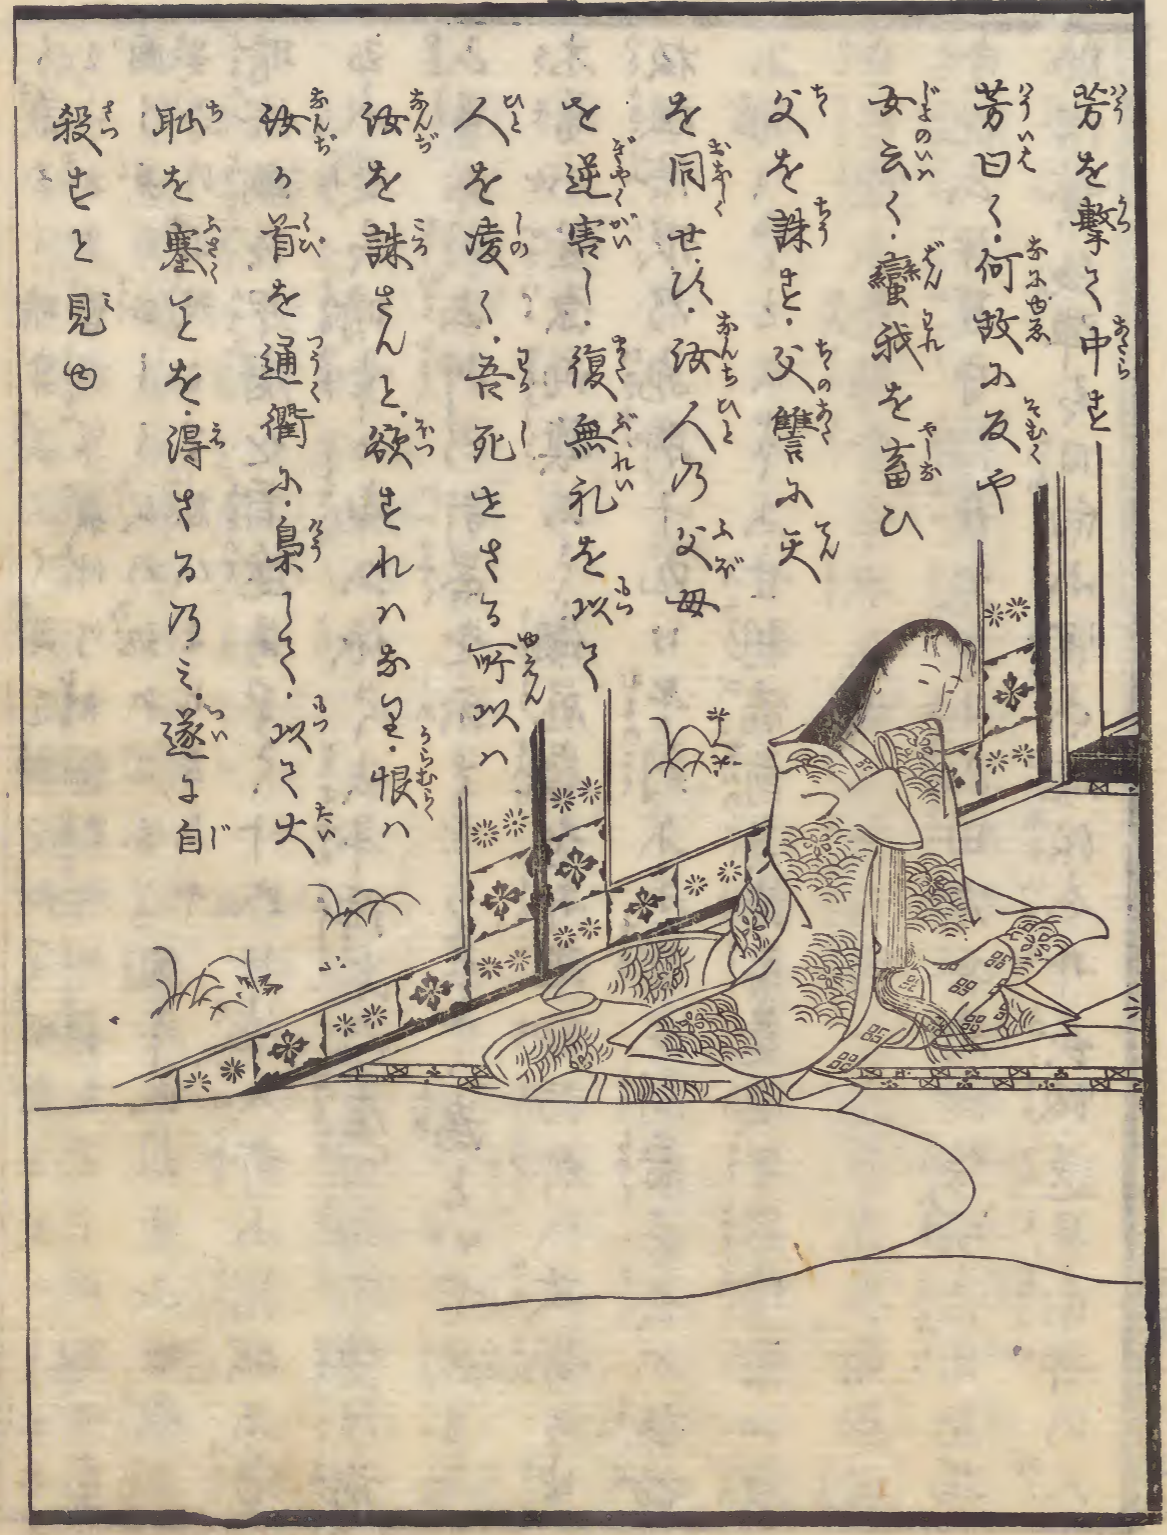 芳を撃て中す
芳曰く・何故に反や
女云く・蠻我を畜ひ
父を誅す・父讐に天
を同せす・汝人の父母
を逆害し・復無礼を以て
人を凌く・吾死せさる所以ハ
汝を誅さんと欲すれハなり・恨ハ
汝か首を通衢に・梟して・以て大
恥を塞ことを・得さるのミ・遂に自
殺すと見ゆ